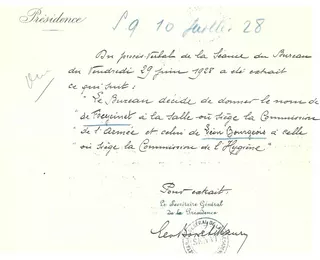 Présidence
S 9 10 Juillet 28
Du procès-verbal de la Séance du Bureau
du Vendredi 29 juin 1928 a été extrait
ce qui suit :
" Le Bureau décide de donner le nom de
" de Freycinet à la salle où siège la Commission
" de l'Armée et celui de Léon Bourgeois à celle
" où siège la Commission de l'Hygiène"
Pour extrait.
Le Secrétaire Général
de la Présidence